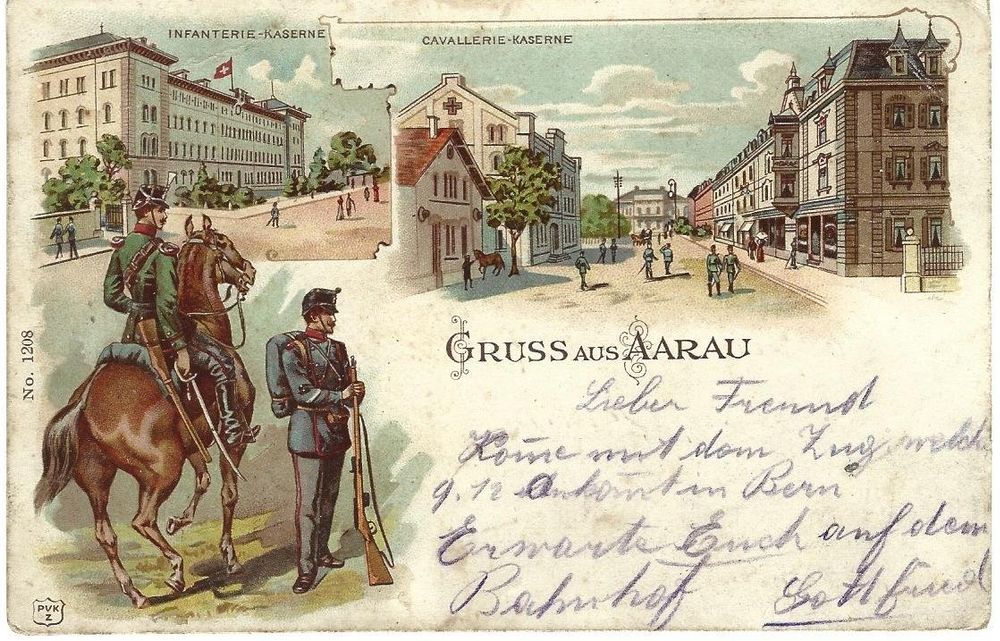 INFANTERIE-KASERNE
CAVALLERIE-KASERNE
No. 1208
GRUSS AUS AARAU
Lieber Freund
Kom̅e mit dem Zug welch
9.12 Ankom̅t in Bern
Erwarte Euch auf dem
Bahnhof Gottfried
PVK
Z